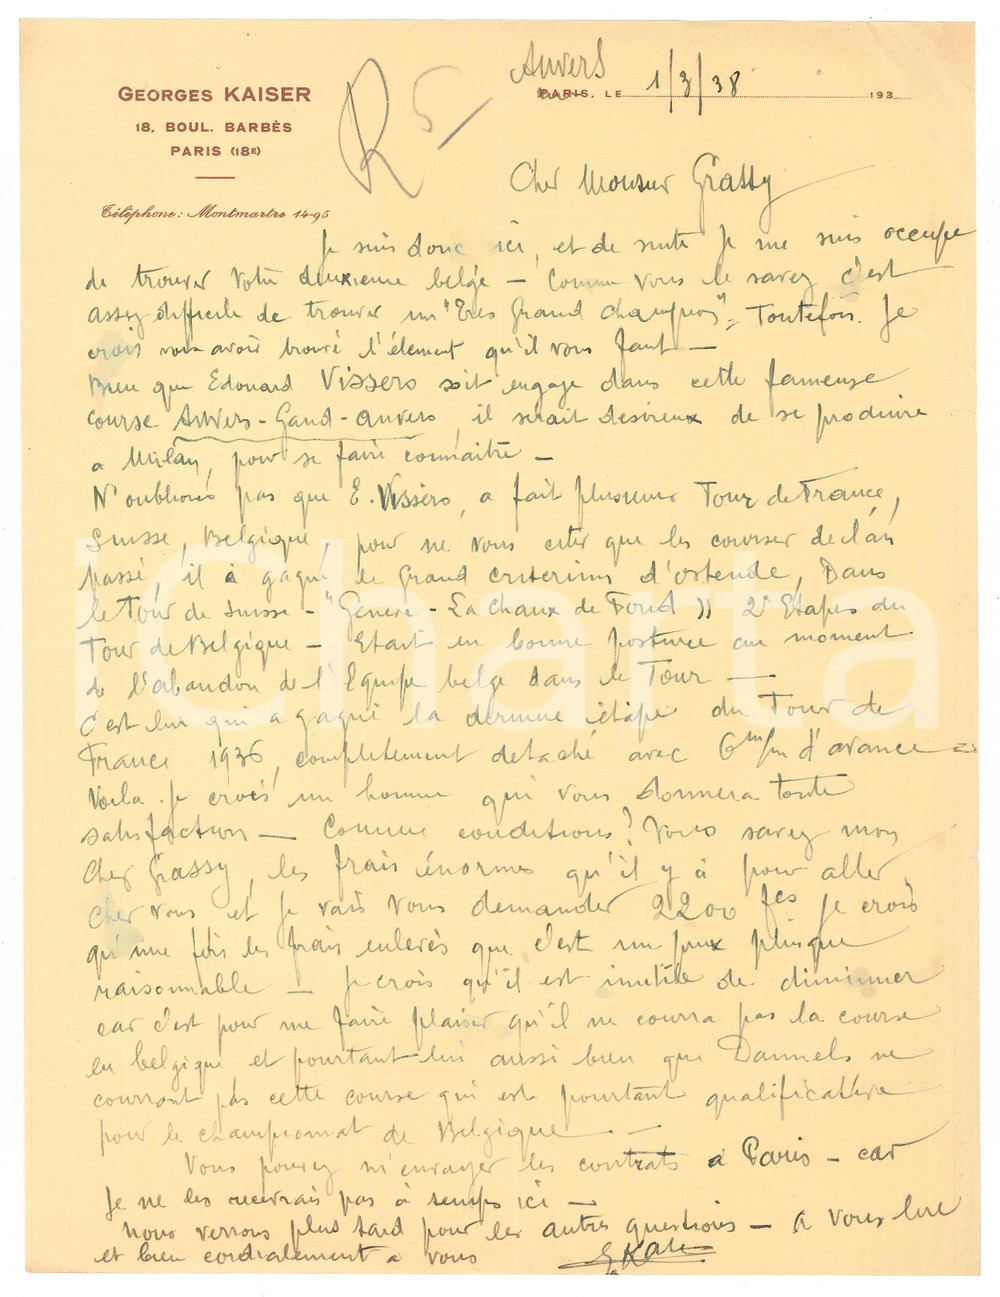 GEORGES KAISER
18, BOUL. BARBÈS
PARIS (18E)
Téléphone: Montmartre 14-95
R 5
Anvers
PARIS, LE 1/3/38 193
Cher Monsieur Grassy
Je suis donc ici, et de suite je me suis occupé
de trouver votre deuxieme belge — Comme vous le savez c'est
assez difficile de trouver un "Tres Grand champion", Toutefois. Je
crois vous avoir trouvé l'élement qu'il vous faut —
Bien que Edouard Vissers soit engagé dans cette fameuse
course Anvers-Gand-anvers, il serait desireux de se produire
a Milan, pour se faire connaitre —
N'oublions pas que E. Vissers, a fait plusieurs Tour de France,
Suisse, Belgique, pour ne vous citer que les courses de l'an
passé, il à gagné le Grand criterium d'ostende, Dans
le Tour de Suisse - "Geneve - La chaux de Fond" 2e Etapes du
Tour de Belgique — Etait en bonne posture au moment
de l'abandon de l'Equipe belge dans le Tour —
C'est lui qui a gagné la derniere étape du Tour de
France 1936, completement detaché avec 6m/m d'avance
Voila je crois un homme qui vous donnera toute
satisfaction — Comme conditions? Vous savez mon
Cher Grassy, les frais énormes qu'il y à pour aller,
Cher vous et je vais vous demander 2200 fcs je crois
qu'une fois les frais enlevés que c'est un prix plusque
raisonnable — je crois qu'il est inutile de diminuer
car c'est pour me faire plaisir qu'il ne courra pas la course
en belgique et pourtant lui aussi bien que Danneels ne
courront pas cette course qui est pourtant qualificative
pour le championnat de Belgique —
Vous pouvez m'envoyer les contrats a Paris — car
je ne les recevrais pas à temps ici —
Nous verrons plus tard pour les autres questions — A vous lire
et bien cordialement a vous
iCharta